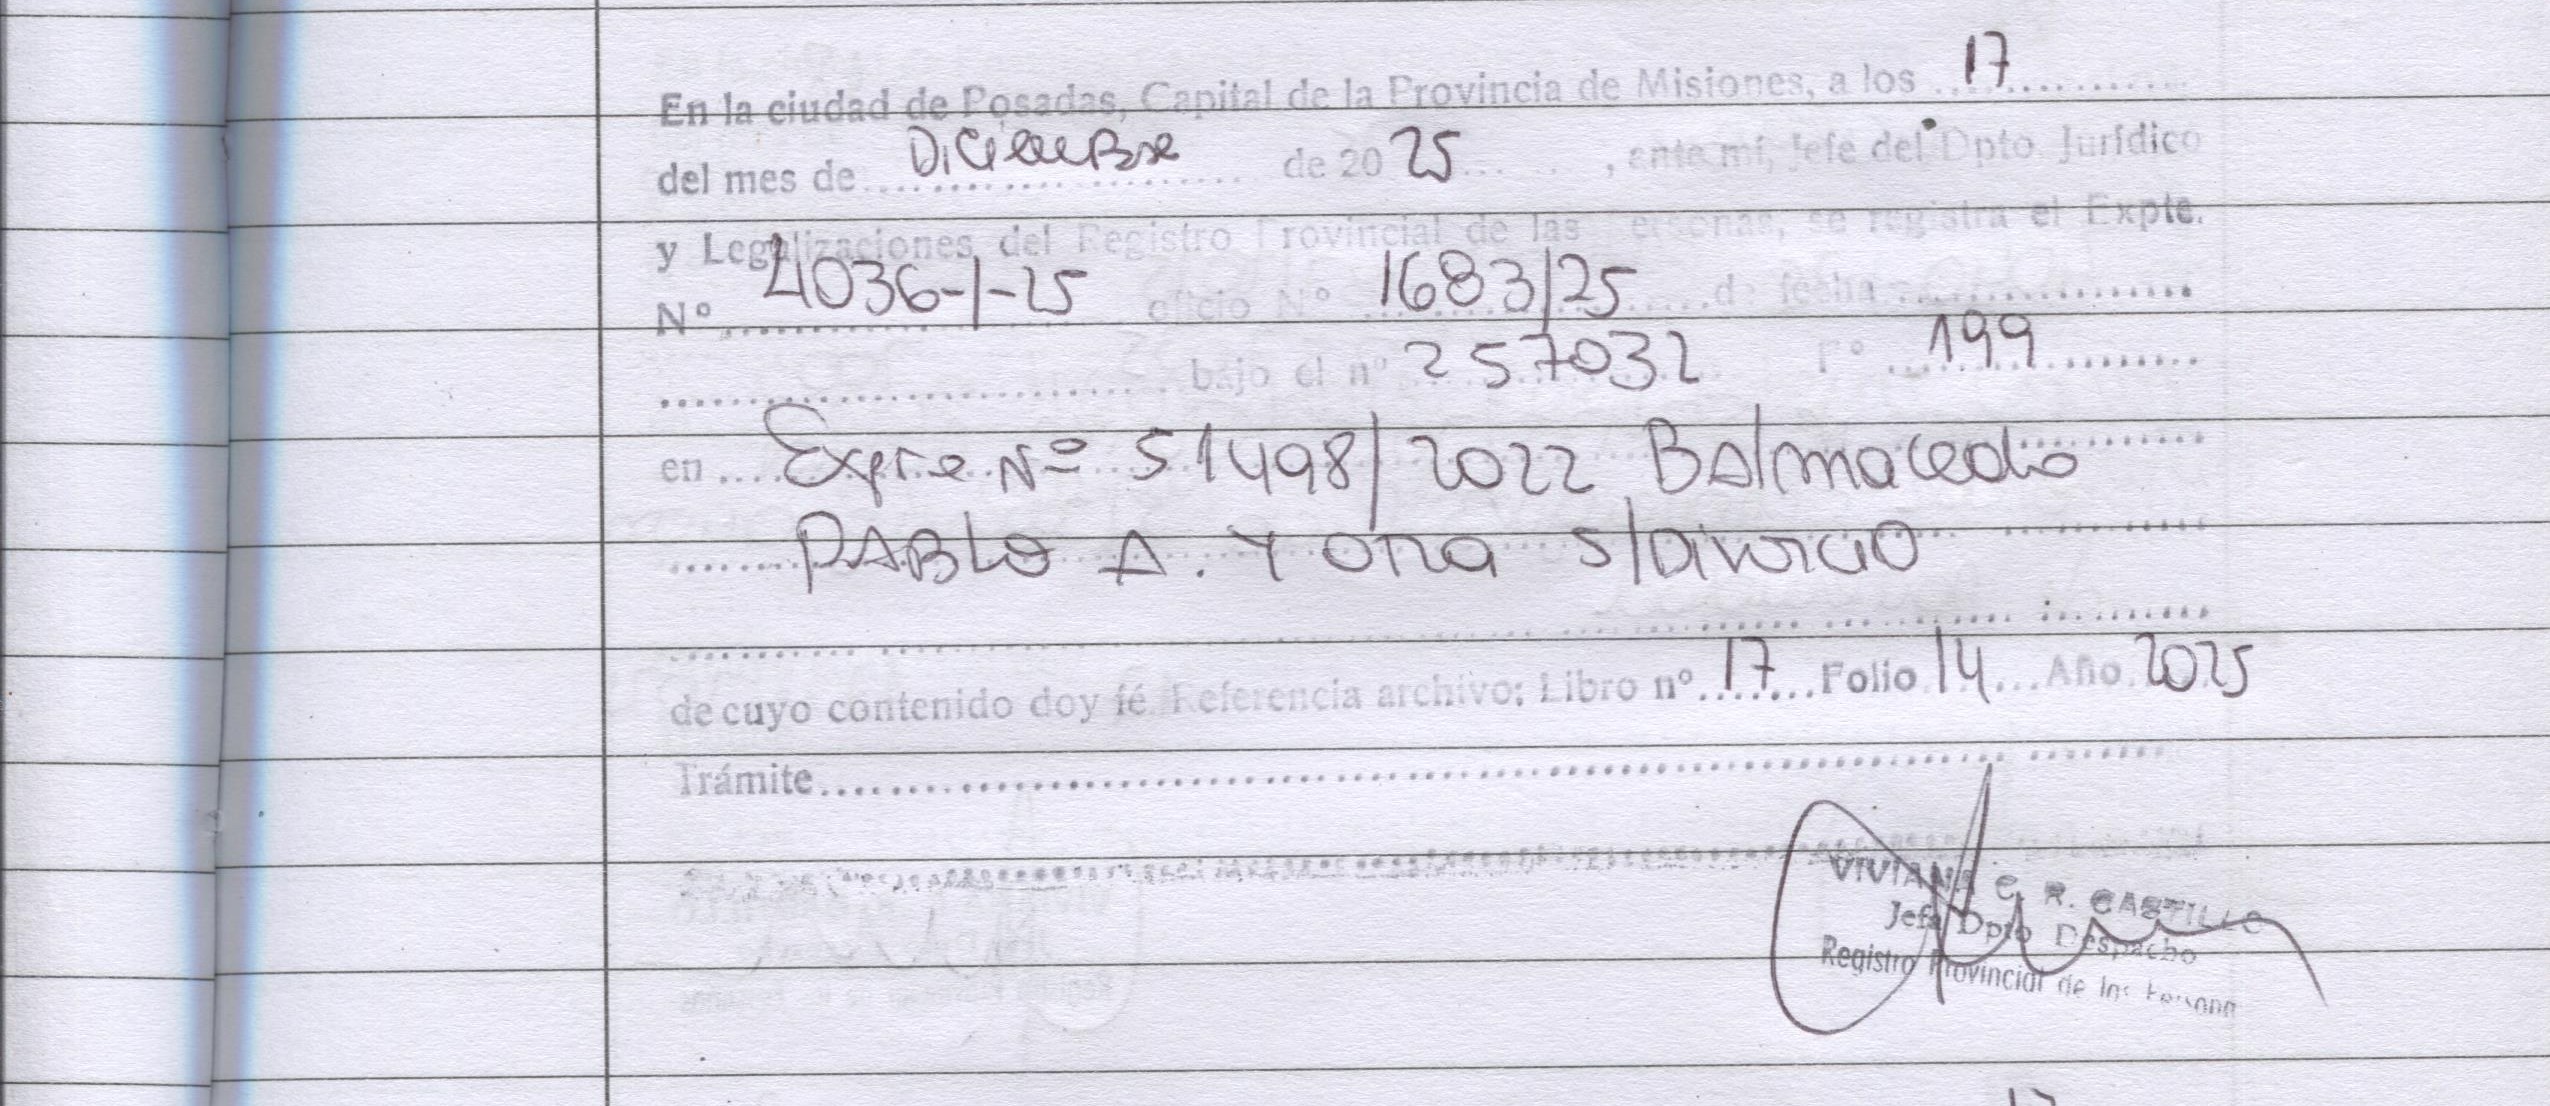 En la ciudad de Posadas, Capital de la Provincia de Misiones, a los 17
del mes de Diciembre de 20 25, ante mí, Jefe del Dpto. Jurídico
y Legalizaciones del Registro Provincial de las Personas, se registra el Expte.
Nº 4036-1-25 oficio Nº 1683/25 de fecha
bajo el nº 257032 Fº 199
en Expte Nº 51498/2022 Balmaceda
PABLO A. Y otra S/Divorcio
de cuyo contenido doy fé. Referencia archivo: Libro nº 17 Folio 14 Año 2025
Trámite
VIVIANA C. R. CASTILLO
Jefa Dpto Despacho
Registro Provincial de las Personas